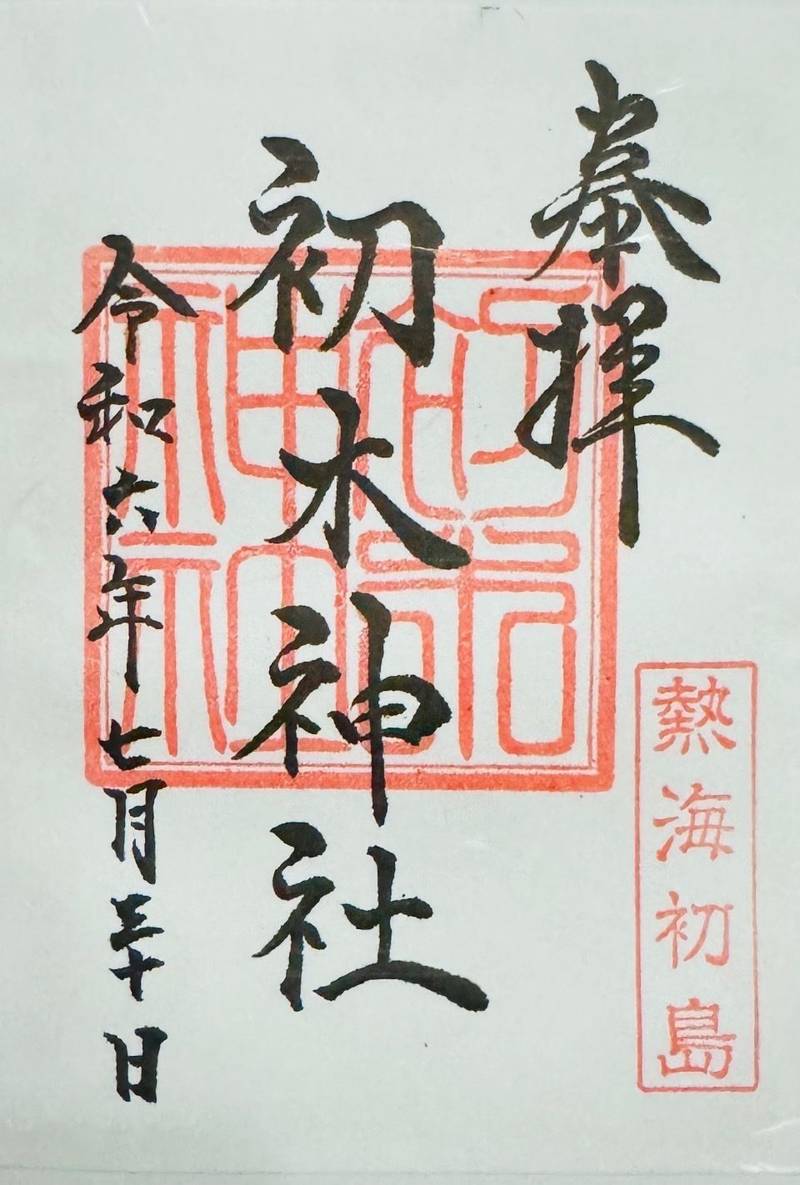 奉拝
熱海初島
初木神社
令和六年七月三十日